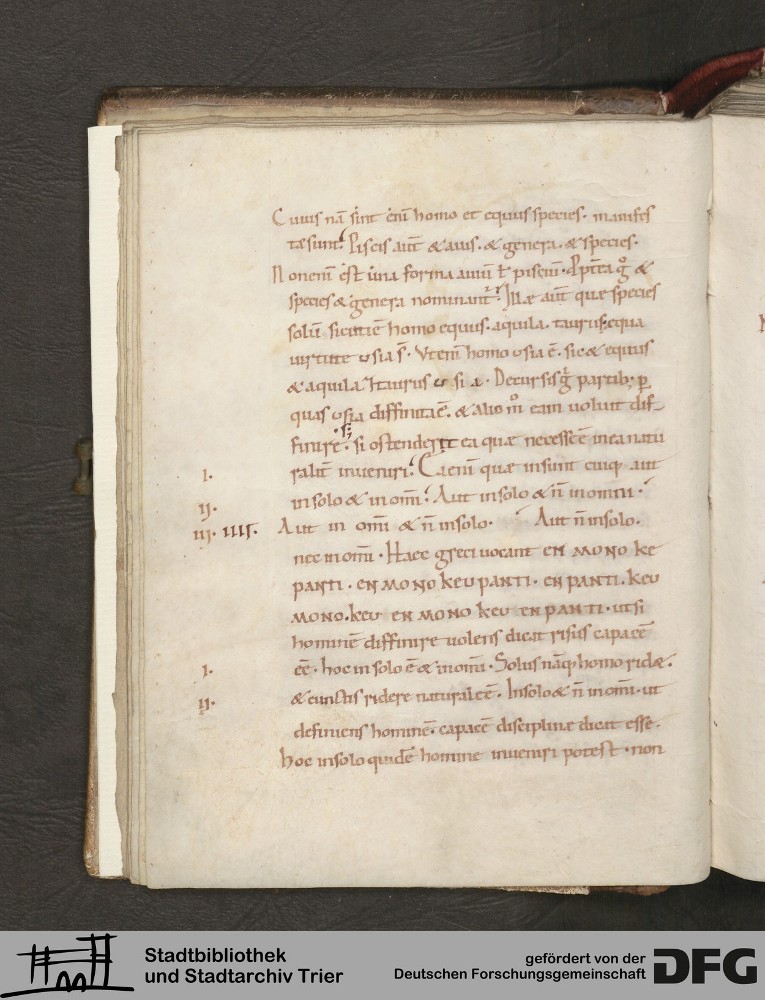 Cuius nā sint enī homo et equus species. manifes
tae sunt. Piscis aut̄ & auis. & genera. & species.
Non enim ēst una forma auiū ł pisciū.
species & genera nominant. Illae aut̄ quae species
solū sicuti ē homo equus. aquila. taurus. equa
uirtute usia s̄. Ut enī homo usia ē. sic & equus
& aquila & taurus usia. Decursis g̊ partib; p̱
quas usia diffinita ē. & alio m̊ eam uoluit dif
finire. si ostenderit ea quae necesse ē in ea natu
I. raliť inueniri. Ea enī quae insunt cuiq; aut
II. in solo & in omī. Aut in solo & n̄ in omni.
III. IIII. Aut in omī & n̄ in solo. Aut n̄ in solo.
nec in omī. Haec greci uocant EN MONO KE
PANTI. EN MONO KEU PANTI. EN PANTI. KEU
MONO. KEU EN MONO KEU EN PANTI. ut si
hominē diffinire uolens dicat risus capacē
I. eē. hoc in solo ē & in omī. Solus nāq; homo ridet.
II. & cunctis ridere naturale ē. In solo & n̄ in omī. ut
definiens hominē. capacē disciplinae dicat esse.
hoc in solo quidē homine inueniri potest. non
Stadtbibliothek
und Stadtarchiv Trier
gefördert von der
Deutschen Forschungsgemeinschaft
DFG